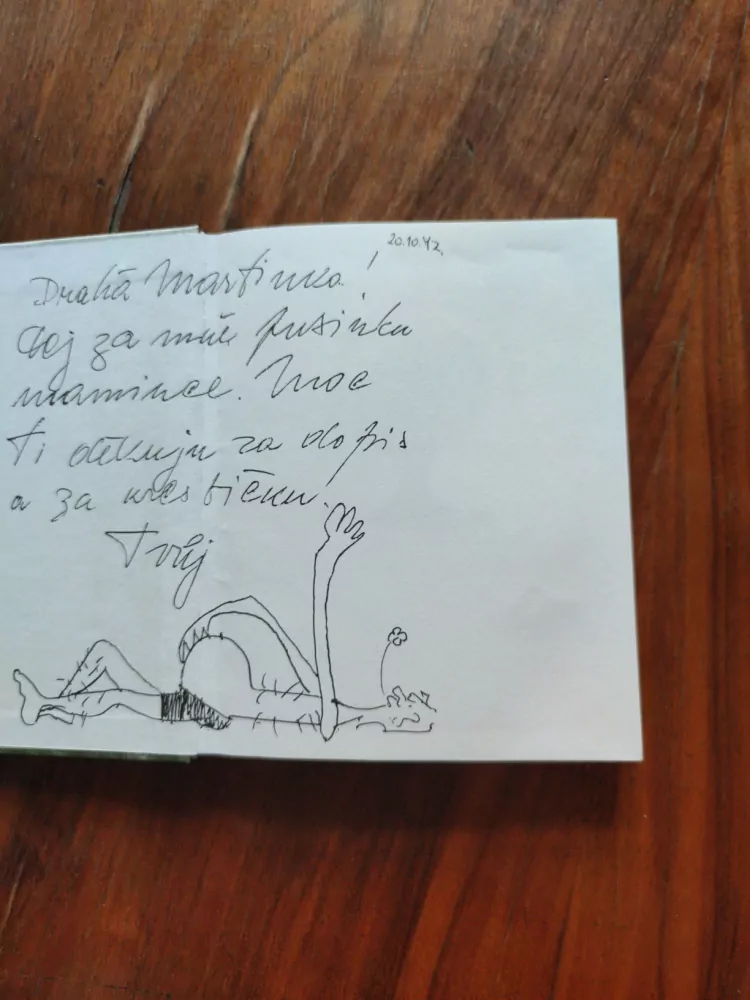 20.10.42.
Drahá Martinko!
dej za mne pusinku
mamince. Moc
Ti děkuju za dopis
a za
Tvůj